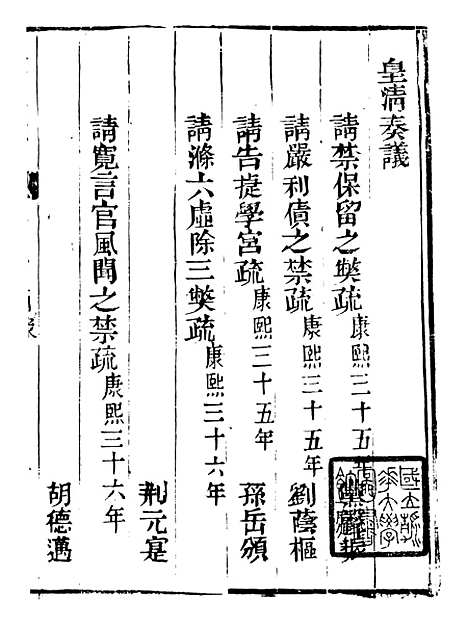 皇清奏議
請禁保留之獘疏康熙三十五年
請嚴利債之禁疏康熙三十五年 劉蔭樞
請告捷學宮疏康熙三十五年 孫岳頒
請滌六虛除三獘疏康熙三十六年
荆元寔
請寬言官風聞之禁疏康熙三十六年
胡德邁